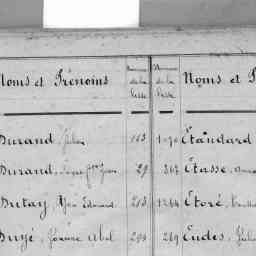 Noms et Prénoms Numéros de la Liste Numéros de la Liste Noms et P
Durand, Jules 113 1070 Étandard
Durand, 29 367 Étasse,
Dutay, Edmond 213 1264 Étoré,
Duyé, Abel 299 289 Eudes, Jules